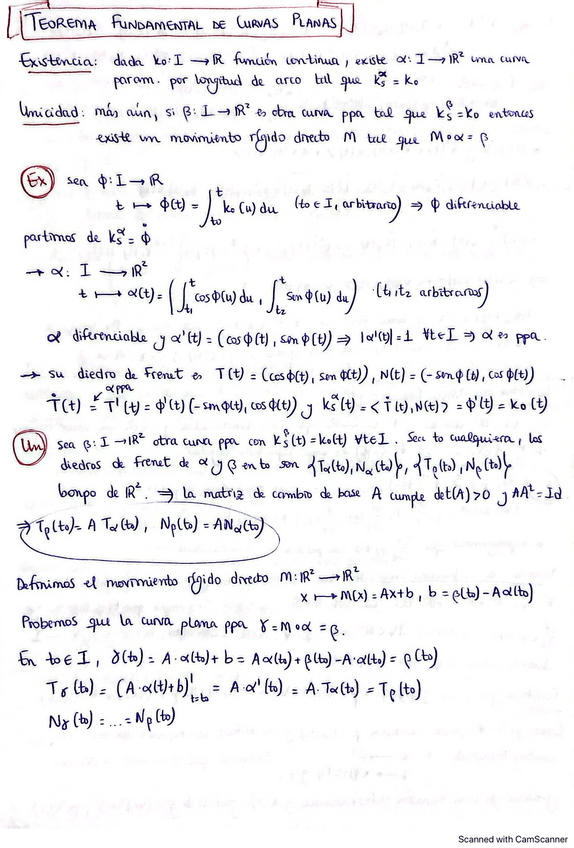 TEOREMA FUNDAMENTAL DE CURVAS PLANAS
Existencia: dada k₀: I → ℝ función continua, existe α: I → ℝ² una curva
param. por longitud de arco tal que kₛ^α = k₀
Unicidad: más aún, si β: I → ℝ² es otra curva ppa tal que kₛ^β = k₀ entonces
existe un movimiento rígido directo M tal que M∘α = β.
Ex sea ϕ: I → ℝ
t ↦ ϕ(t) = ∫_{t₀}^{t} k₀(u) du (t₀ ∈ I, arbitrario) ⇒ ϕ diferenciable
partimos de kₛ^α = ϕ̇
→ α: I → ℝ²
t ↦ α(t) = (∫_{t₁}^{t} cosϕ(u) du, ∫_{t₂}^{t} senϕ(u) du) (t₁, t₂ arbitrarios)
α diferenciable y α'(t) = (cosϕ(t), senϕ(t)) ⇒ |α'(t)| = 1 ∀t∈I ⇒ α es ppa.
→ su diedro de Frenet es T(t) = (cosϕ(t), senϕ(t)), N(t) = (-senϕ(t), cosϕ(t))
α ppa
Ṫ(t) = T'(t) = ϕ'(t) (-senϕ(t), cosϕ(t)) y kₛ^α(t) = <Ṫ(t), N(t)> = ϕ'(t) = k₀(t)
Un sea β: I → ℝ² otra curva ppa con kₛ^β(t) = k₀(t) ∀t∈I. Sea t₀ cualquiera, los
diedros de frenet de α y β en t₀ son {Tα(t₀), Nα(t₀)}, {Tβ(t₀), Nβ(t₀)}
bonpo de ℝ². ⇒ la matriz de cambio de base A cumple det(A)>0 y AAᵗ = Id
⇒ Tβ(t₀) = A Tα(t₀), Nβ(t₀) = ANα(t₀)
Definimos el movimiento rígido directo M: ℝ² → ℝ²
x ↦ M(x) = Ax+b, b = β(t₀) - Aα(t₀)
Probemos que la curva plana ppa γ = M∘α = β.
En t₀ ∈ I, γ(t₀) = A·α(t₀) + b = Aα(t₀) + β(t₀) - A·α(t₀) = β(t₀)
Tγ(t₀) = (A·α(t)+b)'_{t=t₀} = A·α'(t₀) = A·Tα(t₀) = Tβ(t₀)
Nγ(t₀) = ... = Nβ(t₀)
Scanned with CamScanner